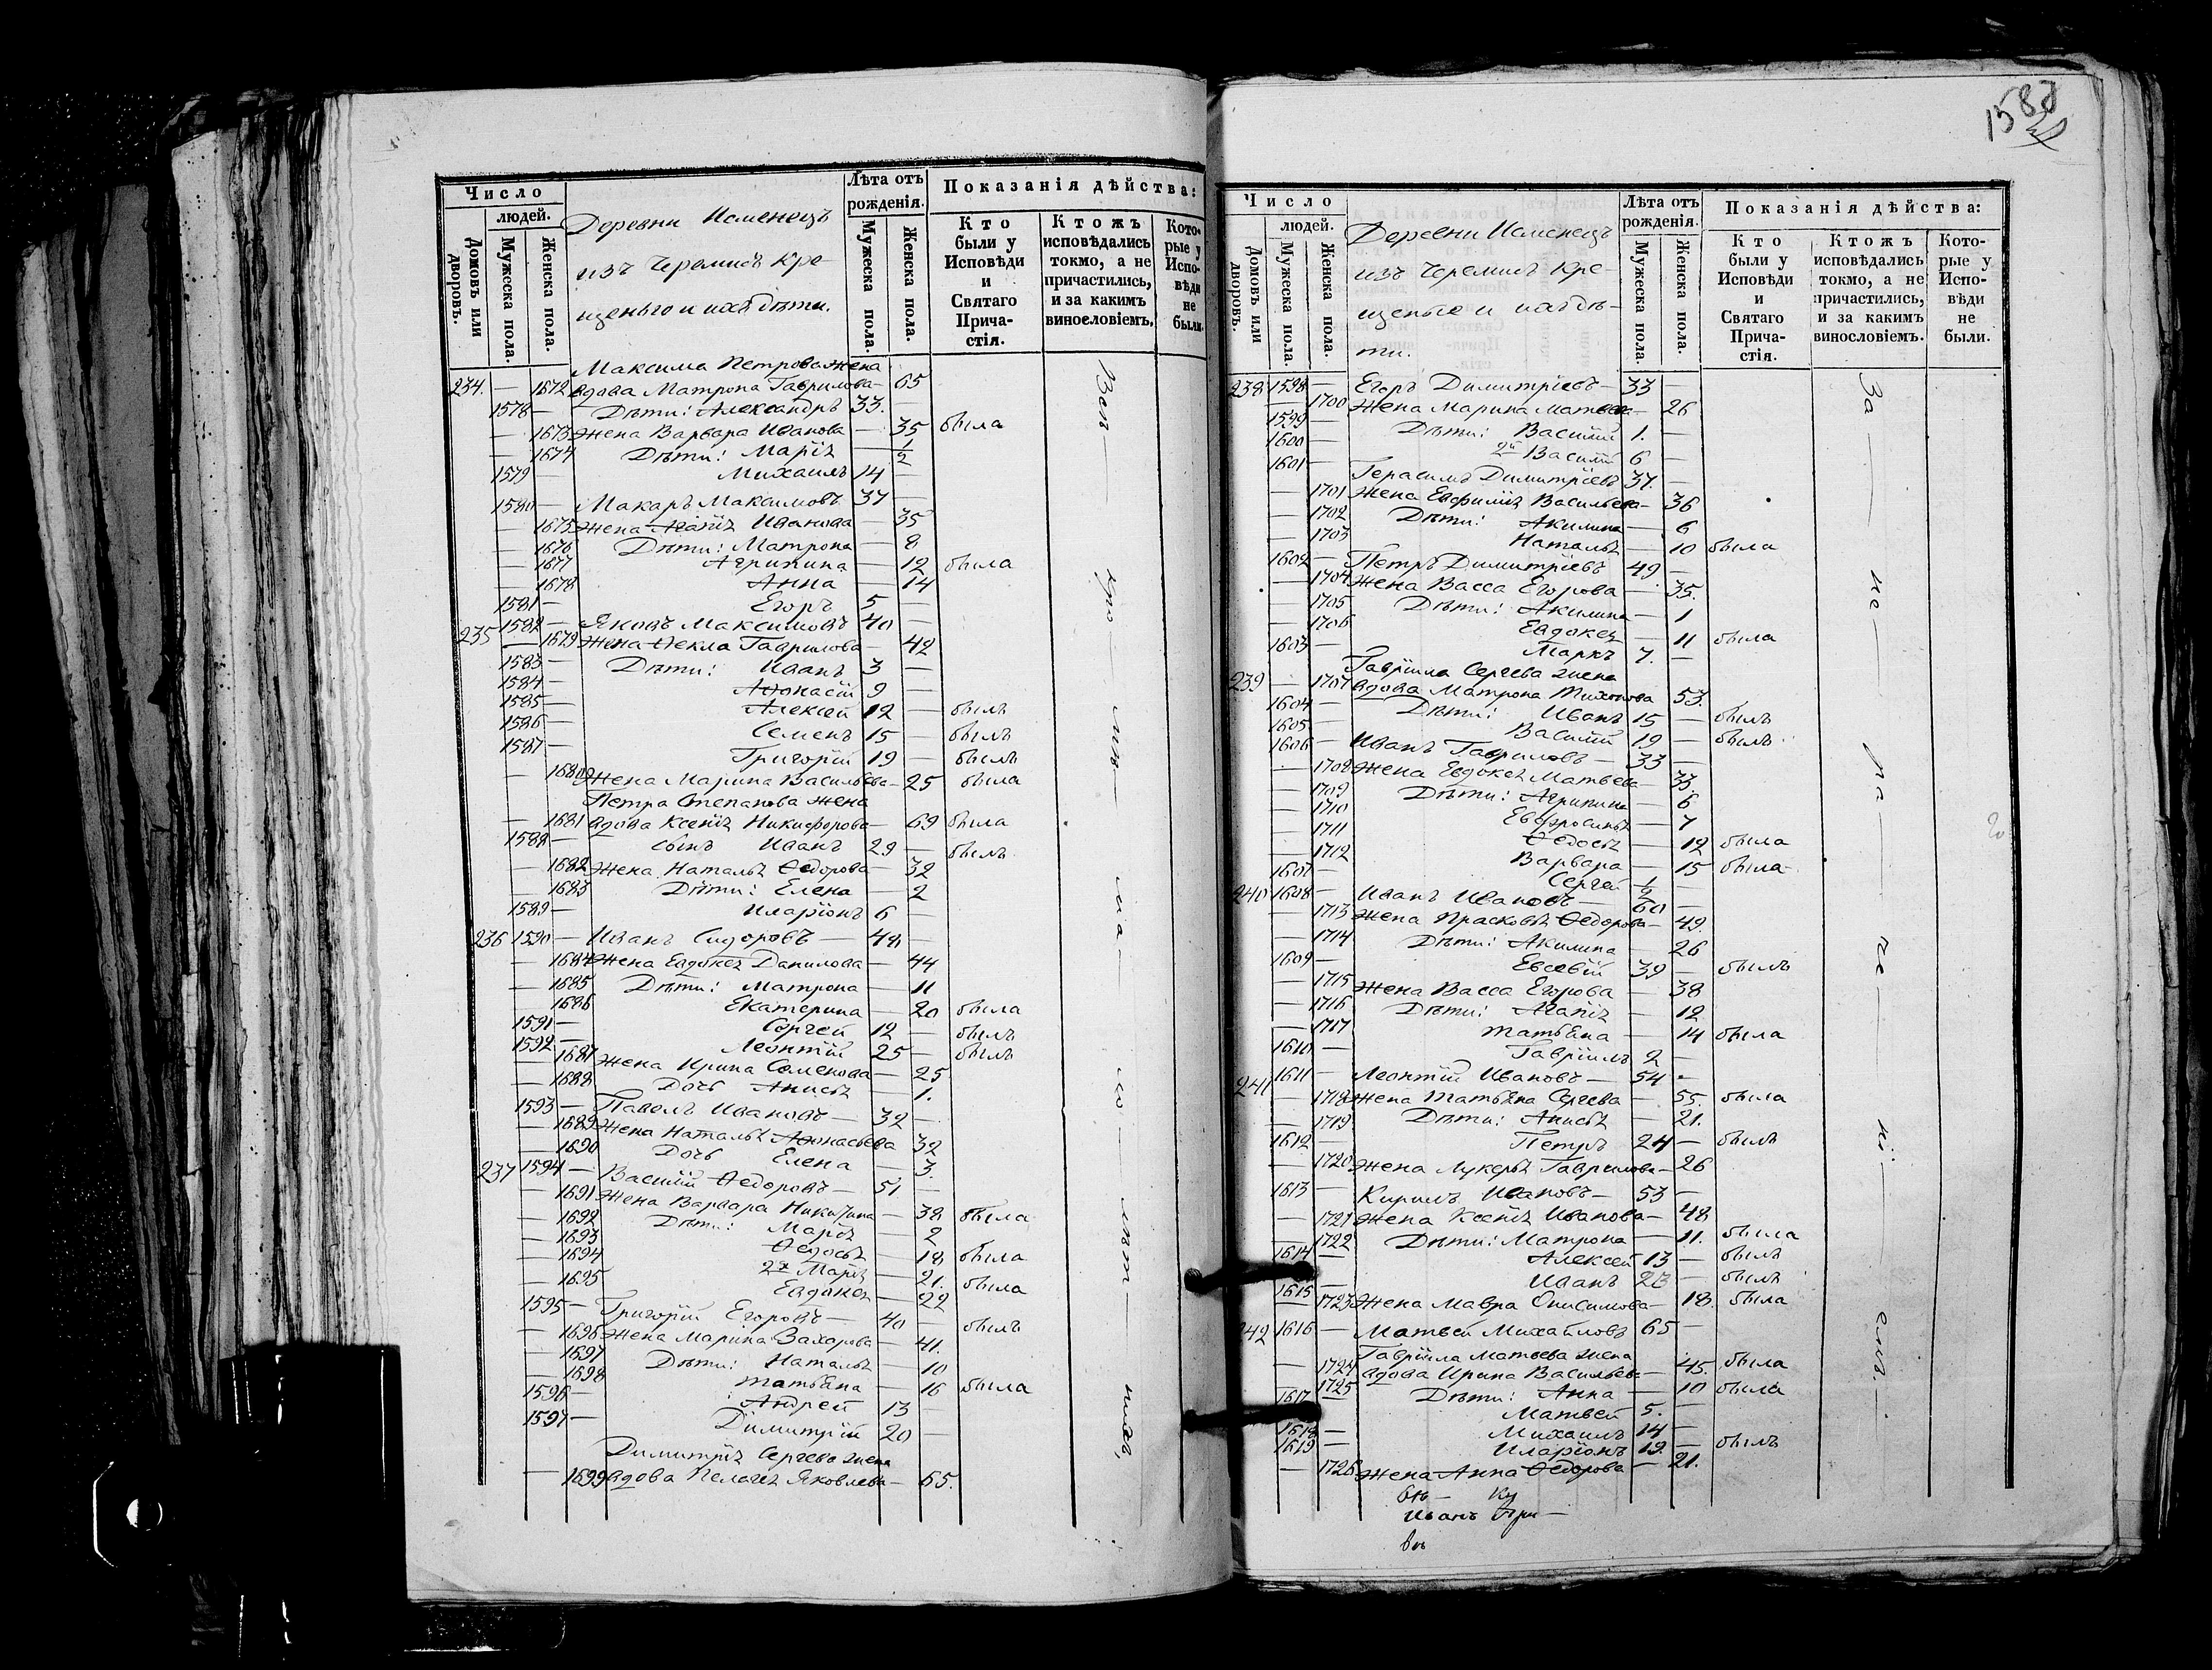 1588
Число
людей.
Домовъ или дворовъ.
Мужеска пола.
Женска пола.
Деревни Исменецъ
изъ Черемисъ кре-
щеныхъ и ихъ дѣти.
Лѣта отъ рожденія.
Мужеска пола.
Женска пола.
Показанія дѣйства:
Кто были у Исповѣди и Святаго Причастія.
Ктожъ исповѣдались токмо, а не причастились, и за какимъ винословіемъ.
Которые у Исповѣди не были.
Максима Петрова жена
234. — 1672 вдова Матрона Гаврилова — 65
1578 — Дѣти: Александръ 33. —
— 1673 Жена Варвара Иванова — 35 была
— 1674 Дѣти: Марія — 1/2
1579 — Михаилъ 14 —
1580 — Макаръ Максимовъ 37 —
— 1675 Жена Агапія Иванова — 35
— 1676 Дѣти: Матрона — 8
— 1677 Агрипина — 12 была
— 1678 Анна — 14
1581 — Егоръ 5 —
235 1582 — Яковъ Максимовъ 40 —
— 1679 Жена Ѳекла Гаврилова — 42
1583 — Дѣти: Иванъ 3 —
1584 — Аѳонасій 9 —
1585 — Алексей 12 — былъ
1586 — Семенъ 15 — былъ
1587 — Григорій 19 — былъ
— 1680 Жена Марина Васильева — 25 была
Петра Степанова жена
— 1681 вдова Ксенія Никифорова — 69 была
1588 — сынъ Иванъ 29 — былъ
— 1682 Жена Наталья Ѳедорова — 32
— 1683 Дѣти: Елена — 2
1589 — Иларіонъ 6 —
236 1590 — Иванъ Сидоровъ — 48 —
— 1684 Жена Евдокея Данилова — 44
— 1685 Дѣти: Матрона — 11
— 1686 Екатерина — 20 была
1591 — Сергей 12 — былъ
1592 — Леонтій 25 — былъ
— 1687 Жена Ирина Семенова — 25
— 1688 Дочь Анисья — 1.
1593 — Павелъ Ивановъ — 32 —
— 1689 Жена Наталья Аѳонасьева 32
— 1690 Дочь Елена — 3.
237 1594 — Василій Ѳедоровъ — 51 —
— 1691 Жена Варвара Никитина — 38 была
— 1692 Дѣти: Марія — 2
— 1693 Ѳедосья — 18 была
— 1694 2я Марія — 21. была
— 1695 Евдокея — 22
1595 — Григорій Егоровъ — 40 — былъ
— 1696 Жена Марина Захарова — 41.
— 1697 Дѣти: Наталья — 10
— 1698 Татьяна — 16 была
1596 — Андрей 13 —
1597 — Димитрій 20 —
Димитрія Сергеева жена
— 1699 вдова Пелагея Яковлева — 65.
Число
людей.
Домовъ или дворовъ.
Мужеска пола.
Женска пола.
Деревни Исменецъ
изъ Черемисъ кре-
щеные и ихъ дѣ-
ти.
Лѣта отъ рожденія.
Мужеска пола.
Женска пола.
Показанія дѣйства:
Кто были у Исповѣди и Святаго Причастія.
Ктожъ исповѣдались токмо, а не причастились, и за какимъ винословіемъ.
Которые у Исповѣди не были.
238 1598 — Егоръ Димитріевъ — 33 —
— 1700 Жена Марина Матвеева — 26
1599 — Дѣти: Василій 1. —
1600 — 2й Василій 6 —
1601 — Герасимъ Димитріевъ 37. —
— 1701 Жена Евфимія Васильева — 36
— 1702 Дѣти: Акилина — 6
— 1703 Наталья — 10 была
1602 — Петръ Димитріевъ 49. —
— 1704 Жена Васса Егорова — 35.
— 1705 Дѣти: Акилина — 1
— 1706 Евдокея — 11 была
1603 — Маркъ 7. —
Гавріила Сергеева жена
239 — 1707 вдова Матрона Тихонова 53.
1604 — Дѣти: Иванъ 15 — былъ
1605 — Василій 19 — былъ
1606 — Иванъ Гавриловъ — 33 —
— 1708 Жена Евдокея Матвеева — 33.
— 1709 Дѣти: Агрипина — 6
— 1710 Евфросинья — 7
— 1711 Ѳедосья — 12 была
— 1712 Варвара — 15 была
1607 — Сергей 1/2 —
240 1608 — Иванъ Ивановъ — 60 —
— 1713 Жена Прасковья Ѳедорова — 49.
— 1714 Дѣти: Акилина — 26
1609 — Евсевій 39 — былъ
— 1715 Жена Васса Егорова — 38
— 1716 Дѣти: Агапія — 12
— 1717 Татьяна — 14 была
1610 — Гавріилъ 2 —
241 1611 — Леонтій Ивановъ — 54 —
— 1718 Жена Татьяна Сергева — 55. была
— 1719 Дѣти: Анисья — 21.
1612 — Петръ 24 — былъ
— 1720 Жена Лукерья Гаврилова — 26
1613 — Кирилъ Ивановъ — 53 —
— 1721 Жена Ксенія Иванова — 48
— 1722 Дѣти: Матрона — 11. была
1614 — Алексей 13 — былъ
1615 — Иванъ 23 — былъ
— 1723 Жена Мавра Онисимова — 18. была
242 1616 — Матвей Михайловъ 65 —
Гавріила Матвеева жена
— 1724 вдова Ирина Васильева — 45. была
— 1725 Дѣти: Анна — 10 была
1617 — Матвей 5. —
1618 — Михаилъ 14 —
1619 — Иларіонъ 19. — былъ
— 1726 Жена Анна Ѳедорова — 21.
Иванъ